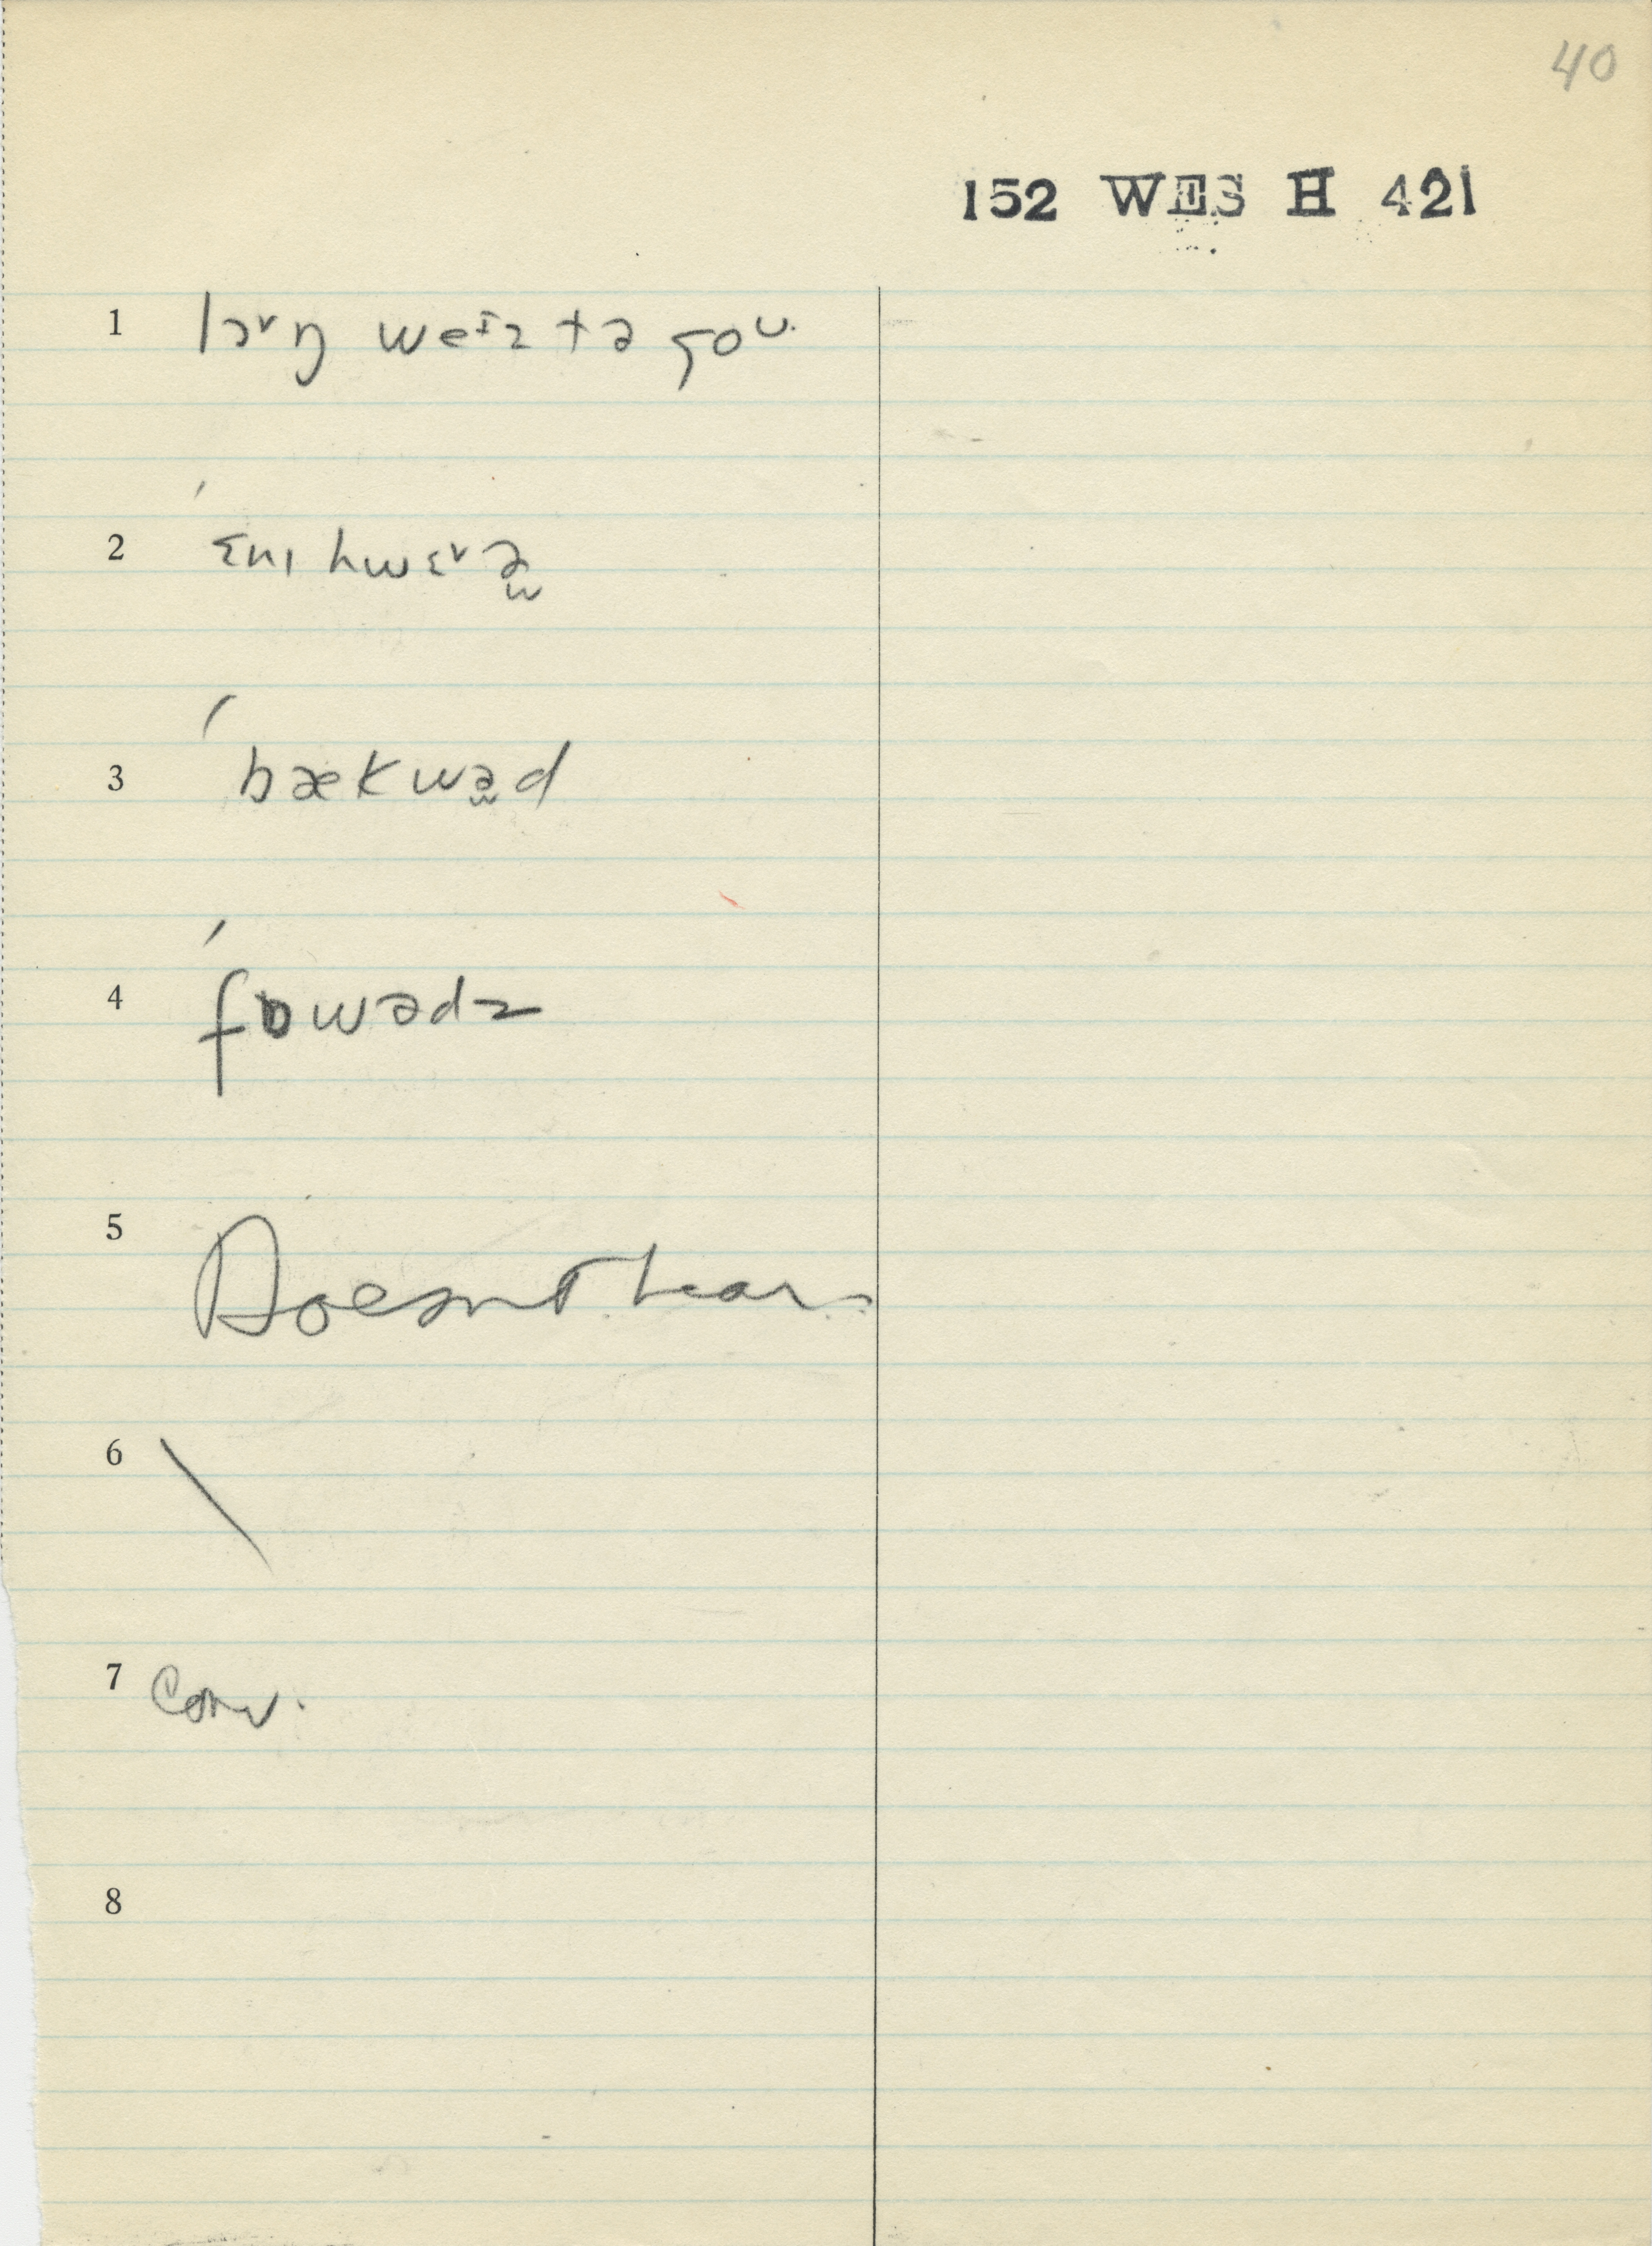 40
152 WES H 421
1 lɔ˅ŋ weɪz tə goʊ.
2 ˈɛnɪ hwɛ˅ə̯
3 ˈbækwə̯d
4 ˈfɒwədz
5 Doesn't hear.
6 \
7 Conv.
8